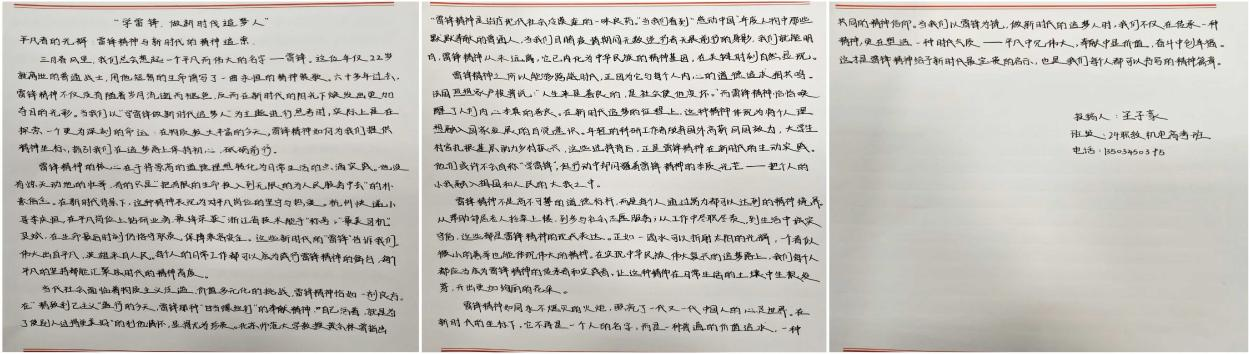 "学雷锋,做新时代追梦人"
平凡者的光辉:雷锋精神与新时代的精神追索
三月春风里,我们总会想起一个平凡而伟大的名字——雷锋,这位年仅22岁
就离世的普通战士,用他短暂的生命谱写了一曲永恒的精神赞歌。六十多年过去,
雷锋精神不仅没有随着岁月流逝而褪色,反而在新时代的阳光下焕发出更加
夺目的光彩。当我们以"学雷锋做新时代追梦人"为主题进行思考时,实际上是在
探索一个更为深刻的命运:在物质极大丰富的今天,雷锋精神如何为我们提供
精神坐标,指引我们在追梦路上保持初心、砥砺前行。
雷锋精神的核心在于将崇高的道德理想转化为日常生活的点滴实践。他没
有惊天动地的壮举,有的只是"把有限的生命投入到无限的为人民服务中去"的朴
素信念。在新时代背景下,这种精神表现为对平凡岗位的坚守与热爱。杭州快递小
哥李庆恒,在平凡岗位上钻研业务最终荣获"浙江省技术能手"称号。"最美司机"
吴斌,在生命最后时刻仍恪守职责,保障乘客安全。这些新时代的"雷锋"告诉我们
伟大出自平凡,英雄来自人民。每个人的日常工作都可以成为践行雷锋精神的舞台,每个
平凡的坚持都能汇聚成时代的精神高度。
当代社会面临着物质主义泛滥、价值多元化的挑战,雷锋精神恰如一剂良药。
在"精致利己主义"盛行的今天,雷锋那种"甘当螺丝钉"的奉献精神,"自己活着,就是为
了使别人过得更美好"的利他情怀,显得尤为珍贵。北京师范大学教授
"雷锋精神是治疗现代社会冷漠症的一味良药。"当我们看到"感动中国"年度人物中那些
默默奉献的普通人,当我们目睹疫情期间无数逆行者无畏前行的身影,我们就能明
白,雷锋精神从未远离,它已内化为中华民族的精神基因,在关键时刻自然显现。
雷锋精神之所以能够跨越时代,正因为它与每个人内心的道德追求相共鸣。
法国思想家卢梭曾说:"人生来是善良的,是社会使他变坏。"而雷锋精神恰恰唤
醒了人们内心本真的善良。在新时代追梦的征程上,这种精神体现为将个人理
想融入国家发展的自觉意识。年轻的科研工作者放弃国外高薪回国效力,大学生
村官扎根基层助力乡村振兴,这些选择背后,正是雷锋精神在新时代的生动实践。
他们或许不会自称"学雷锋",但行动中却闪耀着雷锋精神的本质光芒——把个人的
小我融入祖国和人民的大我之中。
雷锋精神不是高不可攀的道德标杆,而是每个人通过努力都可以达到的精神境界。
从帮助邻居老人拎菜上楼,到参与社区志愿服务;从工作中尽职尽责,到生活中诚实
守信,这些都是雷锋精神的现代表达。正如一滴水可以折射太阳的光辉,一个看似
微小的善举也能体现伟大的精神。在实现中华民族伟大复兴的追梦路上,我们每个人
都应当成为雷锋精神的传承者和实践者,让这种精神在日常生活的土壤中生根发
芽,开出更加绚丽的花朵。
雷锋精神如同永不熄灭的火炬,照亮了一代又一代中国人的心灵世界。在
新时代的坐标下,它不再是一个人的名字,而是一种普遍的价值追求,一种
共同的精神信仰。当我们以雷锋为镜,做新时代的追梦人时,我们不仅在传承一种
精神,更在塑造一种时代气质——平凡中见伟大,奉献中显价值,奋斗中创幸福。
这才是雷锋精神给予新时代最宝贵的启示,也是我们每个人都可以书写的精神篇章。
投稿人:王子豪
班级:24职教机电高考班
电话: